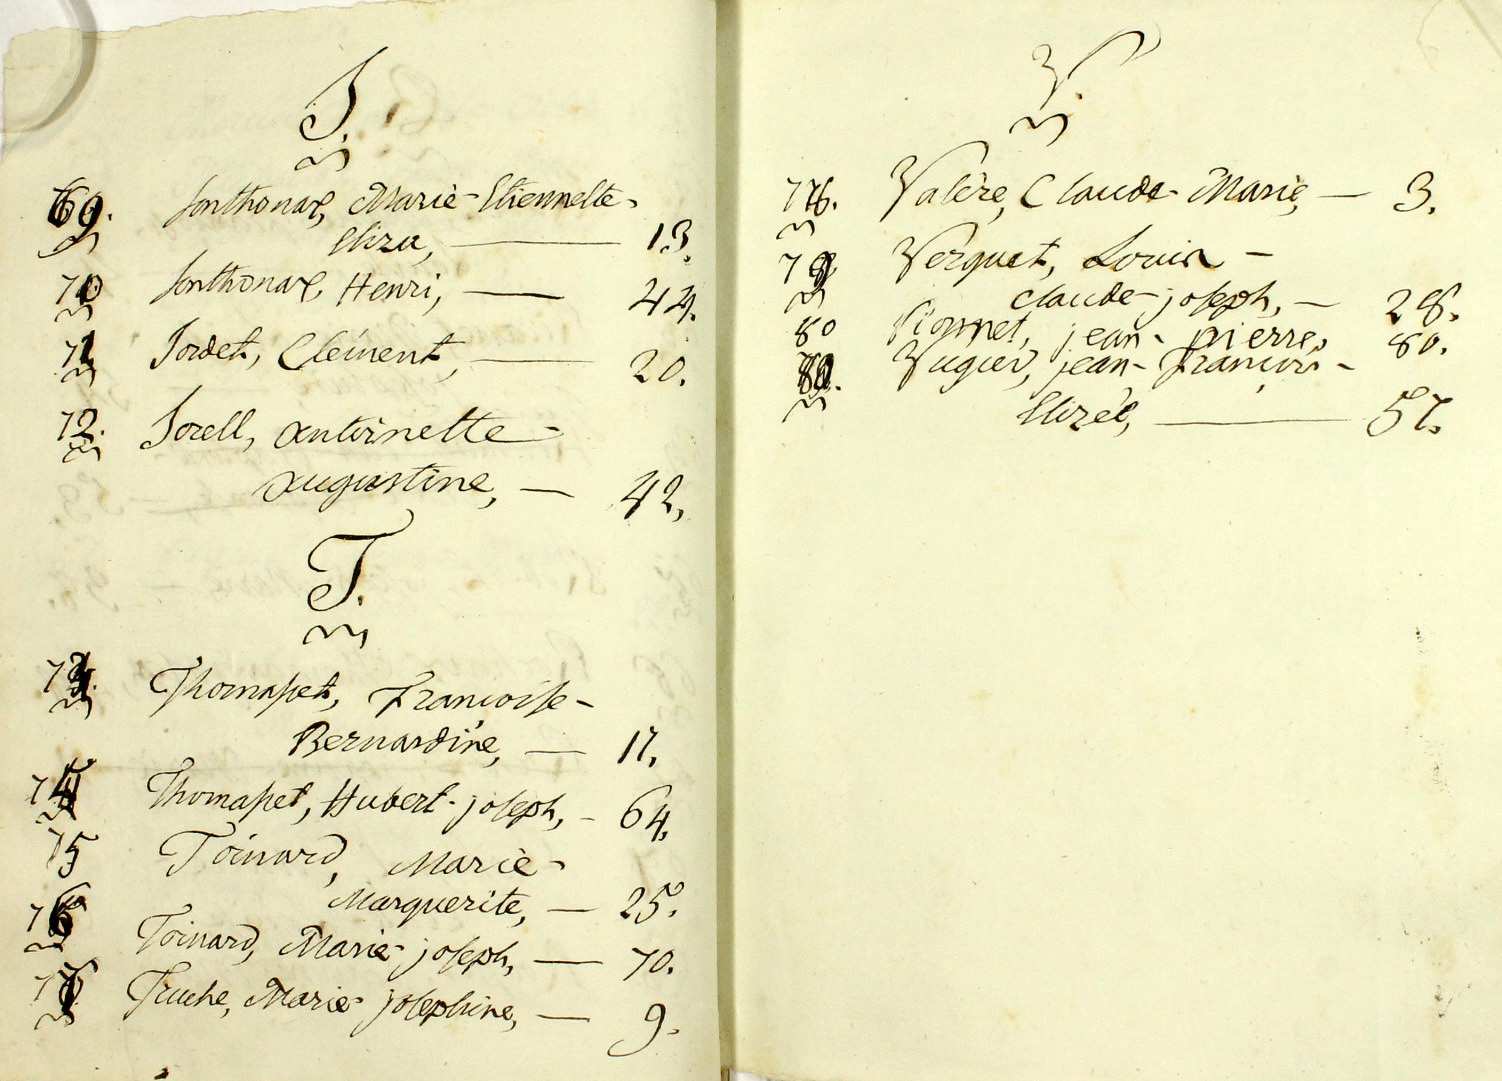 S.
69. Sonthonax, Marie-Etiennette-
Eliza, — 13.
70 Sonthonax, Henri, — 44.
71 Sordet, Clément, — 20.
72. Sorell, antoinette-
augustine, — 42,
T.
73. Thomasset, Françoise-
Bernardine, — 17,
74 Thomasset, Hubert-joseph, - 64,
75 Toinard, Marie-
Marguerite, — 25.
76 Toinard, Marie-joseph, — 70.
77 Truche, Marie-josephine, — 9.
V.
78. Valère, Claude-Marie, — 3.
79 Verguet, Louis-
claude-joseph, — 28.
80 Vionnet, jean-pierre, 80.
81. Vugier, jean-françois-
Elizée, — 57.